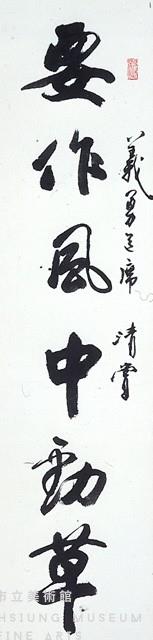 義勇主席 清賞
要作風中勁草
市立美術館
HSIUNG MUSEUM
FINE ARTS